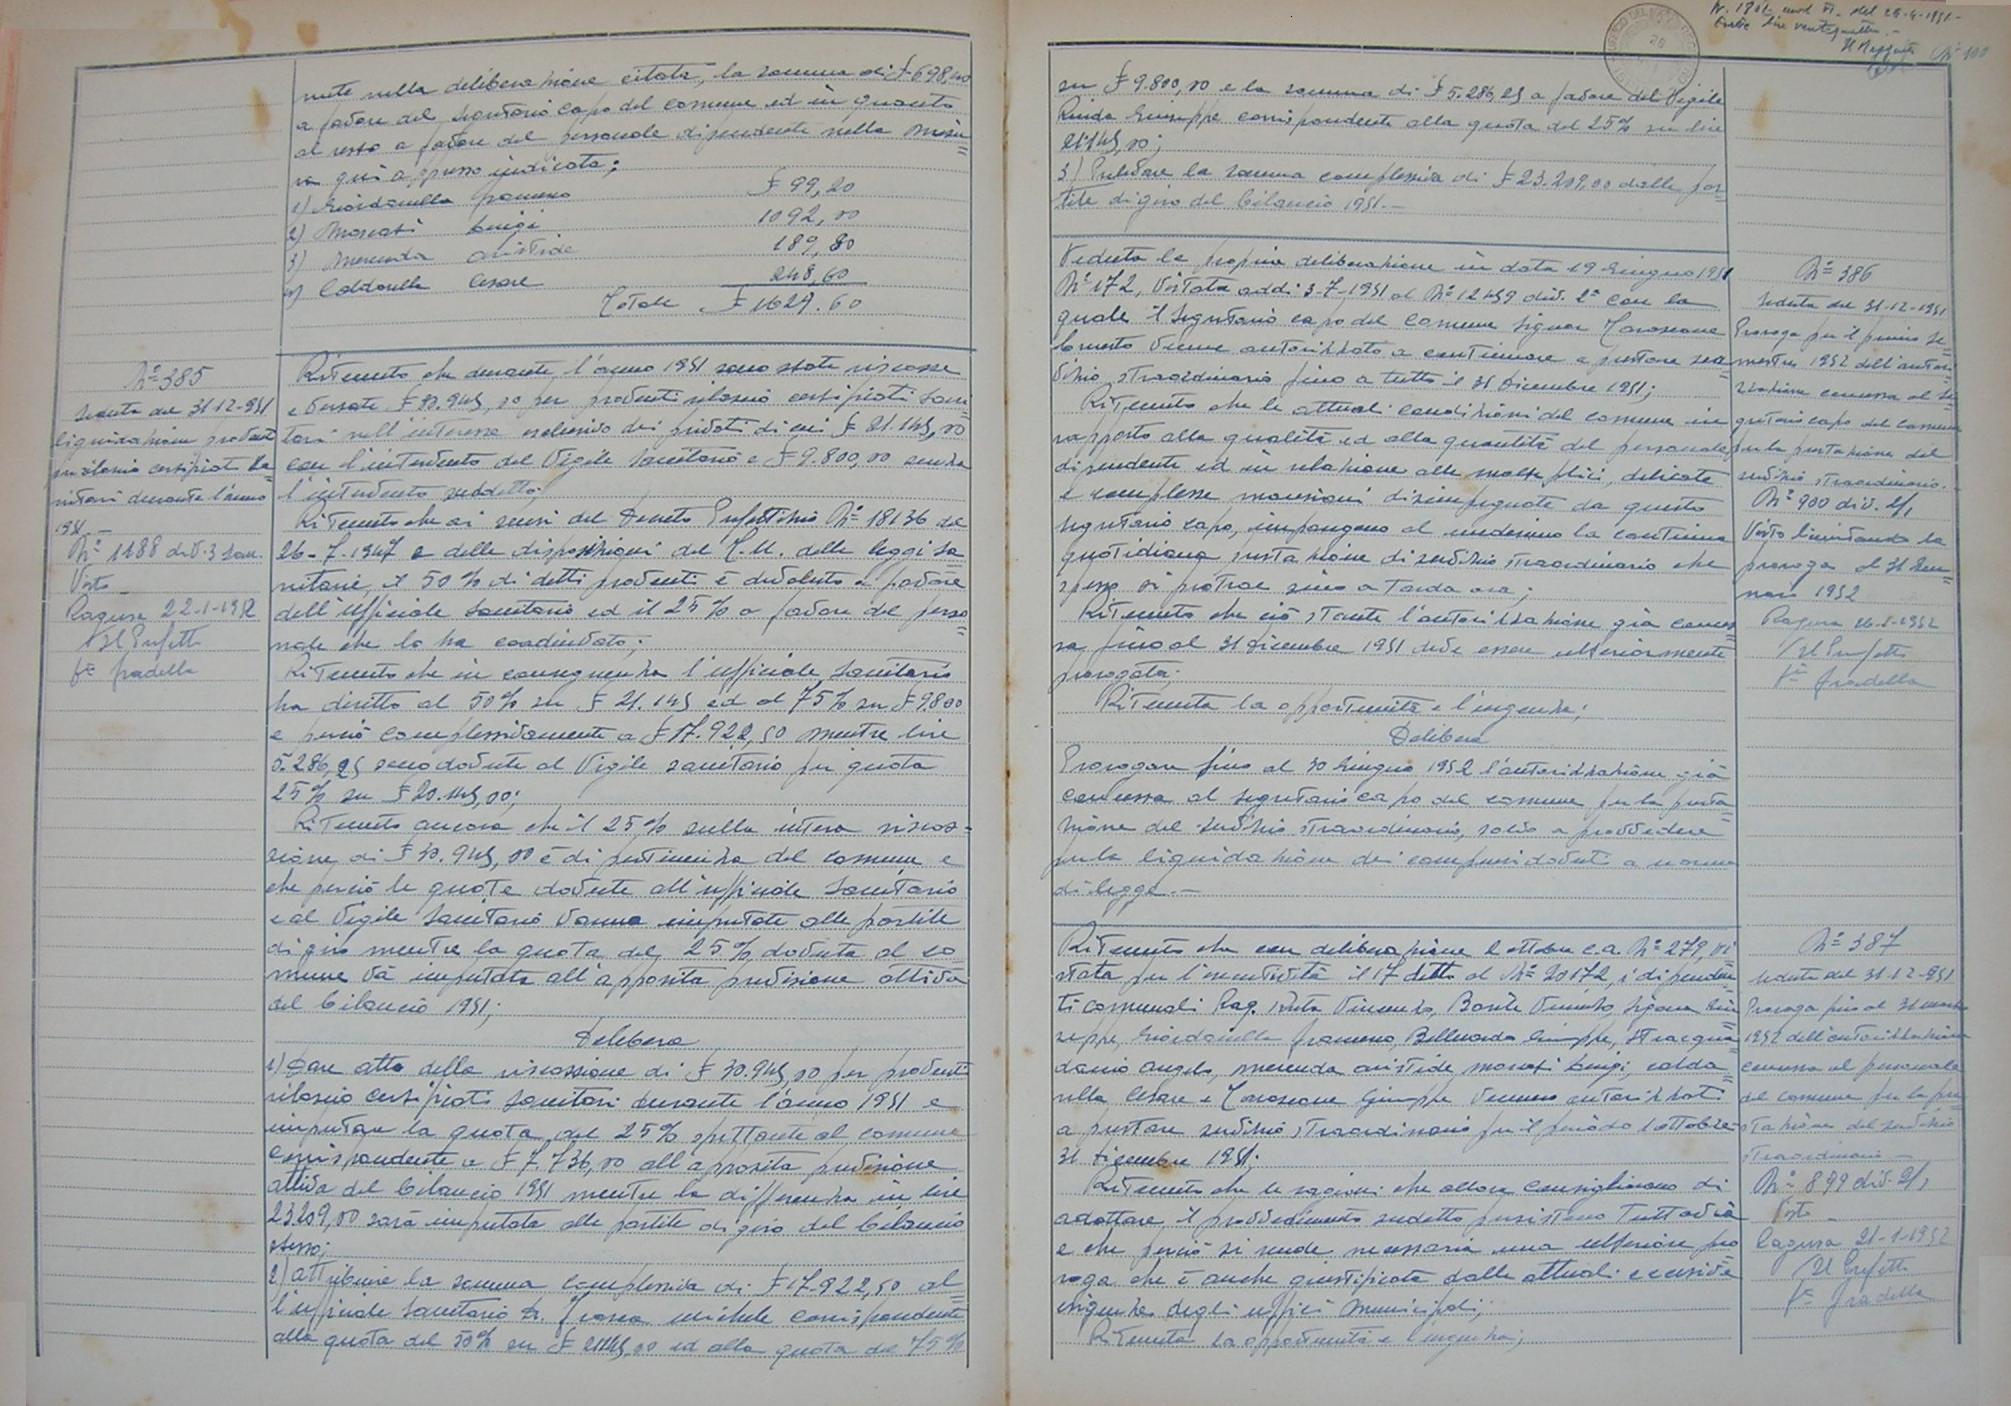 nute nella deliberazione citata, la somma di £ 698,40
a favore del segretario capo del comune ed in quanto
al resto a favore del personale dipendente nella misu=
ra qui appresso indicata;
1) Giordanella £ 99,20
2) Moncati Luigi 1092,00
3) Merenda Aristide 189,80
4) Caldarella Cesare 248,60
Totale £ 1629.60
N° 385
Seduta del 31-12-951
liquidazione proventi
rilascio certificati sa=
nitari durante l'anno
1951
N° 1188 div. 3 San.
Visto
Ragusa 22-1-1952
Il Prefetto
f° Gradella
Ritenuto che durante l'anno 1951 sono state riscosse
e versate £ 30.945,00 per proventi rilascio certificati sani=
tari nell'interesse esclusivo dei privati di cui £ 21.145,00
con l'intervento del Vigile Sanitario e £ 9.800,00 senza
l'intervento suddetto;
Ritenuto che ai sensi del Decreto Prefettizio N° 18136 del
26-7-1947 e delle disposizioni del T.U. delle leggi sa
nitarie, il 50% di detti proventi è devoluto a favore
dell'Ufficiale Sanitario ed il 25% a favore del perso
nale che lo ha coadiuvato;
Ritenuto che in conseguenza l'ufficiale Sanitario
ha diritto al 50% su £ 21.145 ed al 75% su £ 9.800
e perciò complessivamente a £ 17.922,50 mentre lire
5.286,25 sono dovute al Vigile sanitario per quota
25% su £ 20.145,00;
Ritenuto ancora che il 25% sulla intera riscos=
sione di £ 30.945,00 è di pertinenza del comune e
che perciò le quote dovute all'ufficiale Sanitario
e al Vigile Sanitario vanno imputate alle partite
di giro mentre la quota del 25% dovuta al co
mune va imputata all'apposita previsione attiva
del bilancio 1951;
Delibera
1) Dare atto della riscossione di £ 30.945,00 per proventi
rilascio certificati sanitari durante l'anno 1951 e
imputare la quota del 25% spettante al comune
corrispondente a £ 7.736,00 all'apposita previsione
attiva del bilancio 1951 mentre la differenza in lire
23209,00 sarà imputata alle partite di giro del bilancio
stesso;
2) Attribuire la somma complessiva di £ 17.922,50 al=
l'ufficiale Sanitario Dr. Michele corrispondente
alla quota del 50% su £ 21145,00 ed alla quota del 75%
N. 1801 mod VI. del 28-4-1951-
lire
N° 100
su £ 9.800,00 e la somma di £ 5.286,25 a favore del Vigile
Giuseppe corrispondente alla quota del 25% su lire
21145,00;
3) Prelevare la somma complessiva di £ 23.209,00 dalle par=
tite di giro del bilancio 1951.-
N° 386
Seduta del 31-12-1951
Proroga per il primo se=
mestre 1952 dell'autoriz=
zazione concessa al se=
gretario capo del comune
per la prestazione del
servizio straordinario.-
N° 900 div. 2/1
Visto limitando la
proroga al 31 Gen=
naio 1952
Ragusa 26-1-1952
Il Prefetto
f° Gradella
Veduta la propria deliberazione in data 19 Giugno 1951
N° 172, vistata addì 3-7-1951 al N° 12459 div. 2ª con la
quale il segretario capo del comune Signor
Ernesto venne autorizzato a continuare a prestare ser=
vizio straordinario fino a tutto il 31 Dicembre 1951;
Ritenuto che le attuali condizioni del comune in
rapporto alla qualità ed alla quantità del personale
dipendente ed in relazione alle molteplici, delicate
e complesse mansioni disimpegnate da questo
segretario capo, impongono al medesimo la continua
quotidiana prestazione di servizio straordinario che
spesso si protrae sino a tarda ora;
Ritenuto che ciò stante l'autorizzazione già conces=
sa fino al 31 Dicembre 1951 deve essere ulteriormente
prorogata;
Ritenuta la opportunità e l'urgenza;
Delibera
Prorogare fino al 30 Giugno 1952 l'autorizzazione già
concessa al segretario capo del comune per la presta=
zione del servizio straordinario, salvo a provvedere
per la liquidazione dei compensi dovuti a norma
di legge.-
N° 387
Seduta del 31-12-951
Proroga fino al 31 marzo
1952 dell'autorizzazione
concessa al personale
del comune per la pre=
stazione del servizio
straordinario.-
N° 899 div. 2/1
Visto
Ragusa 21-1-1952
Il Prefetto
f° Gradella
Ritenuto che con deliberazione 2 ottobre c.a. N° 279, vi
stata per l'esecutività il 17 detto al N° 20172, i dipenden=
ti comunali Rag. Vincenzo, Barile Giu
seppe, Giordanella Belluardo Giuseppe, Stracqua=
danio Angelo, Merenda Aristide, Luigi, Calda=
rella Cesare e Giuseppe vennero autorizzati
a prestare servizio straordinario per il periodo 1 ottobre=
31 Dicembre 1951;
Ritenuto che le ragioni che allora consigliavano di
adottare il provvedimento sudetto persistono tuttavia
e che perciò si rende necessaria una ulteriore pro
roga che è anche giustificata dalle attuali eccessive
esigenze degli uffici Municipali;
Ritenuta la opportunità e l'urgenza;